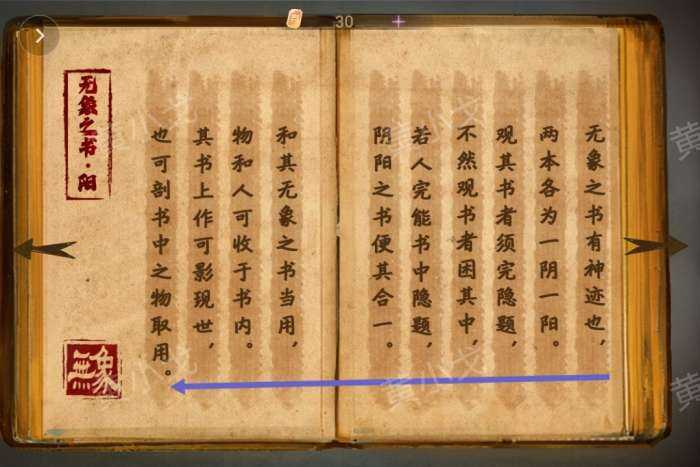 30
无象之书有神迹也，
两本各为一阴一阳。
观其书者须完隐题，
不然观书者困其中，
若人完能书中隐题，
阴阳之书便其合一。
和其无象之书当用，
物和人可收于书内。
其书上作可影现世，
也可剖书中之物取用。
无象之书·阳
無象
黄小戈
黄小戈
黄小戈
黄小戈
黄
黄